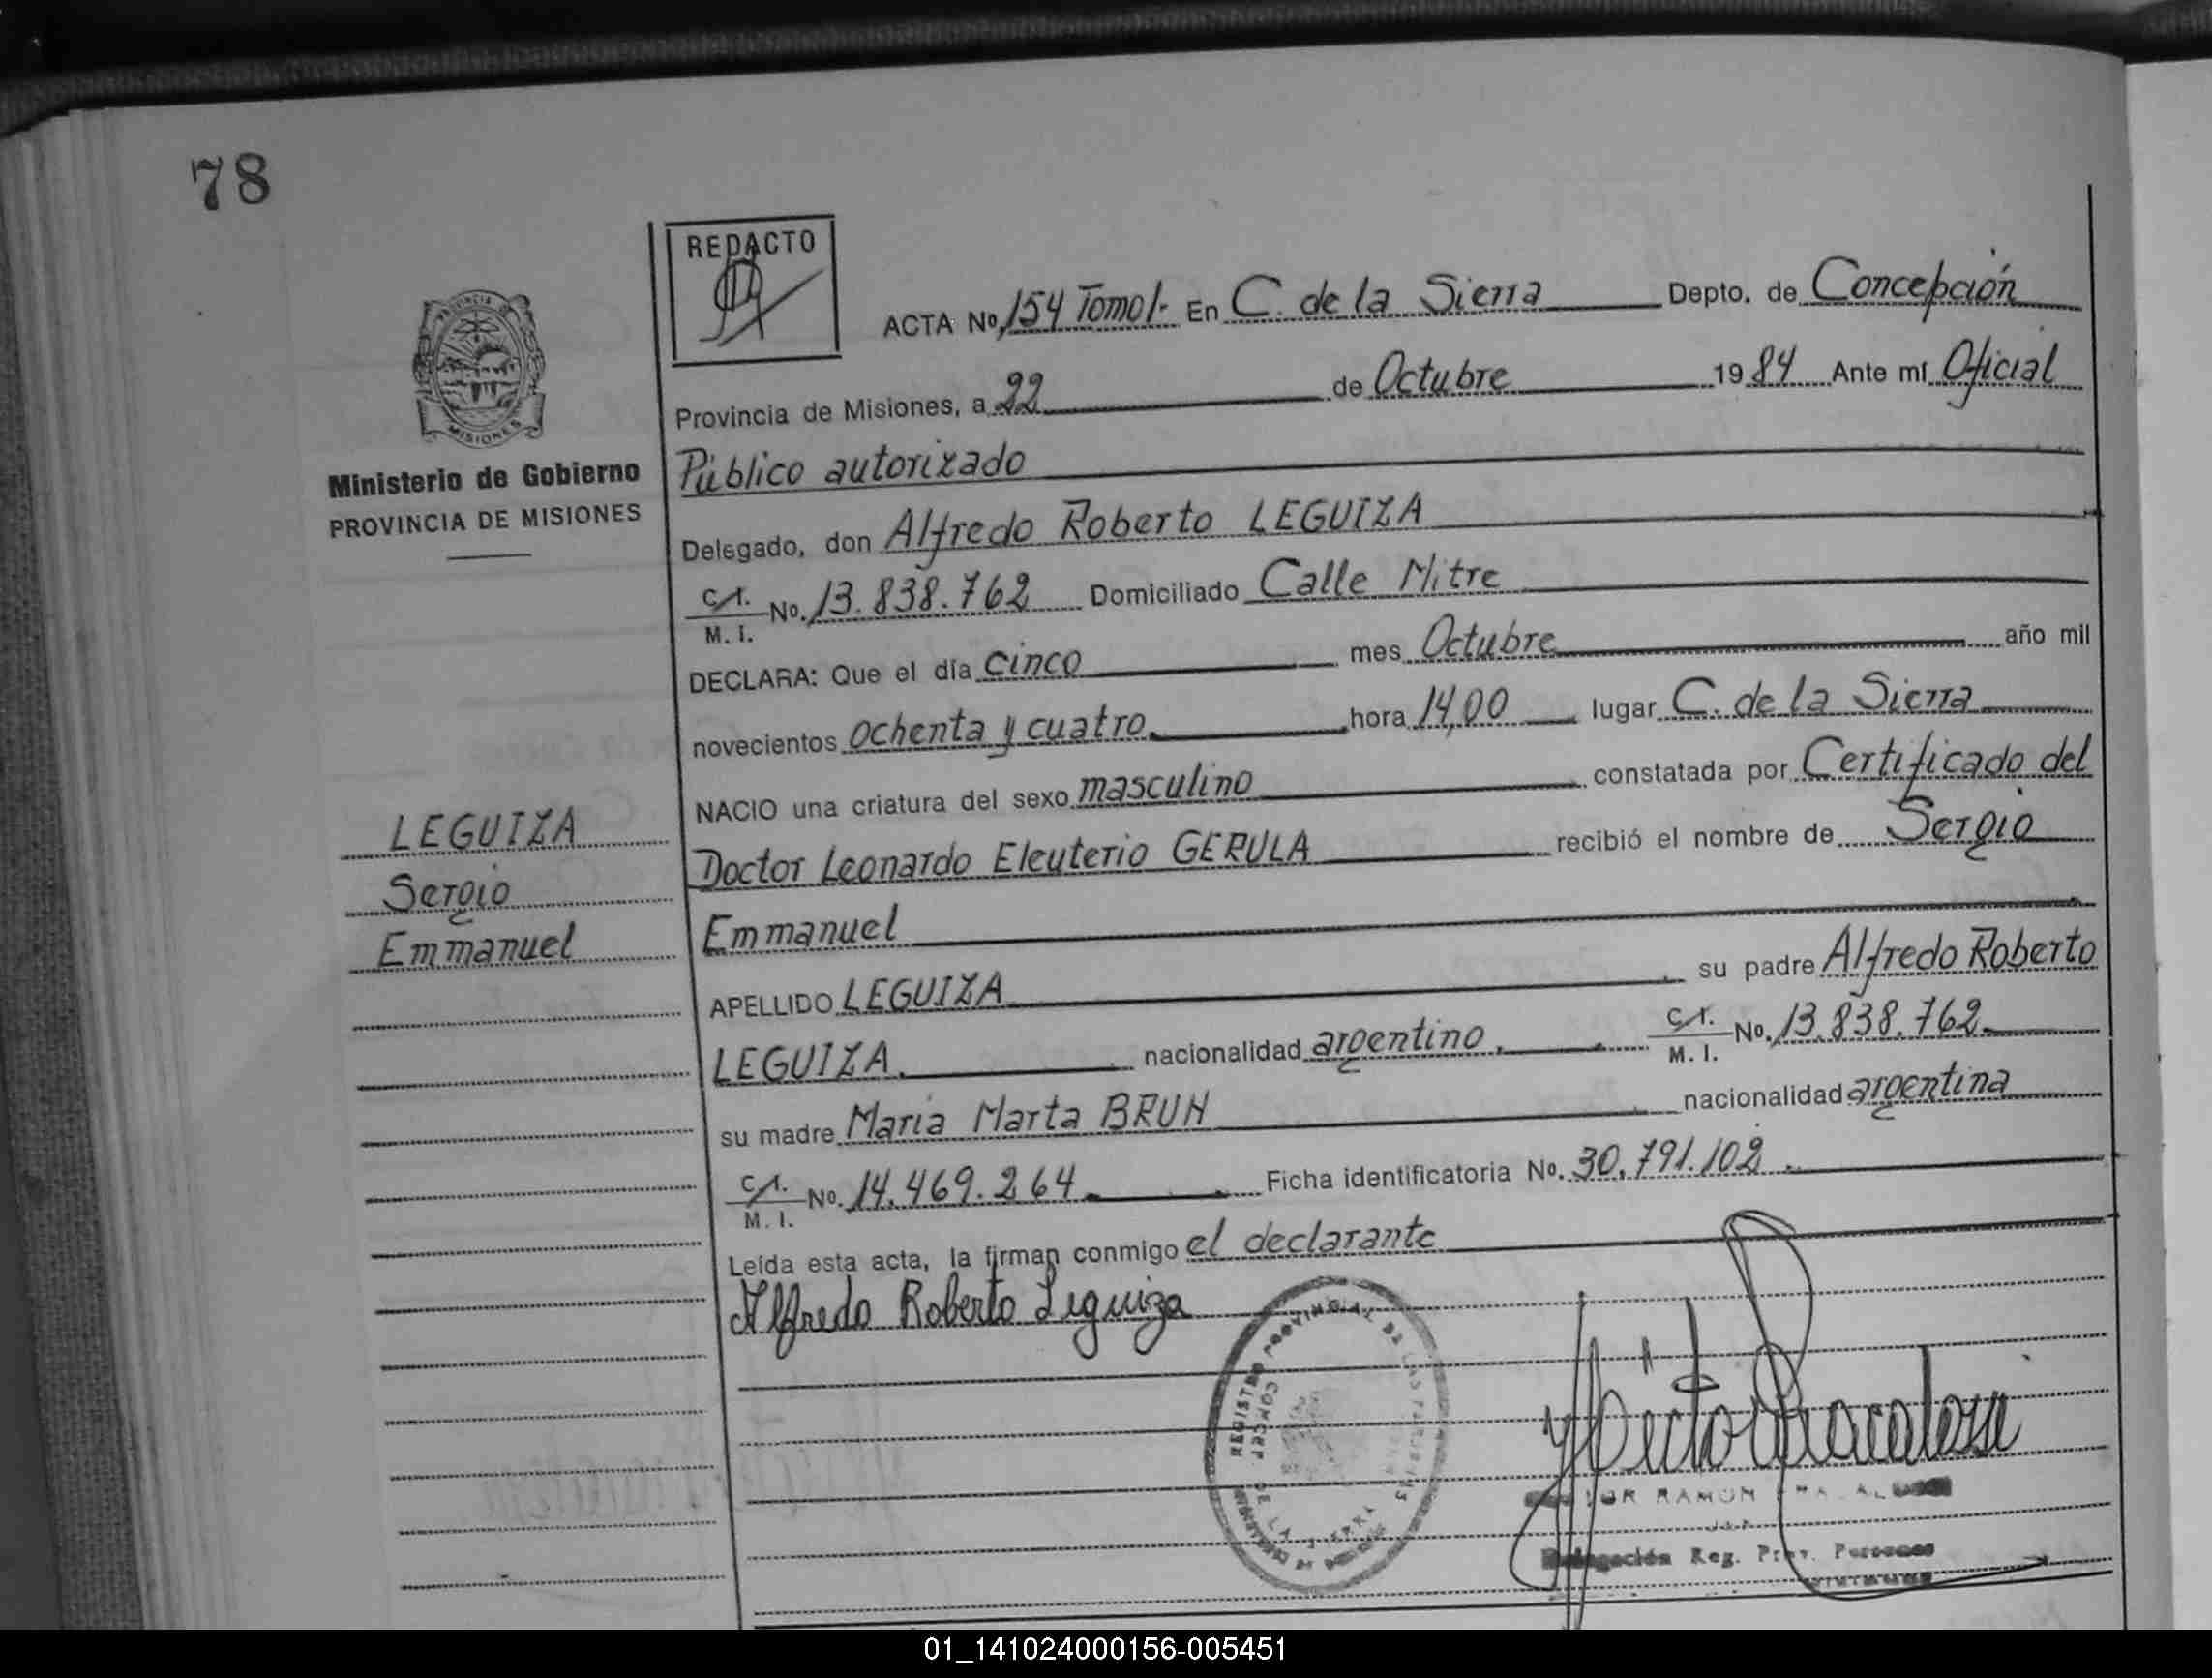 78
REDACTO
ACTA No. 154 Tomo I- En C. de la Sierra Depto. de Concepción
Provincia de Misiones, a 22 de Octubre 1984 Ante mí Oficial
Público autorizado
PROVINCIA
MISIONES
Ministerio de Gobierno
PROVINCIA DE MISIONES
Delegado, don Alfredo Roberto LEGUIZA
C.I. No. 13.838.762 Domiciliado Calle Mitre
M. I.
DECLARA: Que el día cinco mes Octubre año mil
novecientos ochenta y cuatro. hora 14,00 lugar C. de la Sierra
NACIO una criatura del sexo masculino constatada por Certificado del
LEGUIZA
Doctor Leonardo Eleuterio GERULA recibió el nombre de Sergio
Sergio
Emmanuel
Emmanuel
APELLIDO LEGUIZA su padre Alfredo Roberto
LEGUIZA. nacionalidad argentino. C.I. No. 13.838.762
M. I.
su madre Maria Marta BRUN nacionalidad argentina
C.I. No. 14.469.264 Ficha identificatoria No. 30.791.102.
M. I.
Leída esta acta, la firman conmigo el declarante
Alfredo Roberto Leguiza
REGISTRO PROVINCIAL DE LAS PERSONAS
CONCEP. DE LA SIERRA
RAMON
Delegación Reg. Prov. Personas
01_141024000156-005451